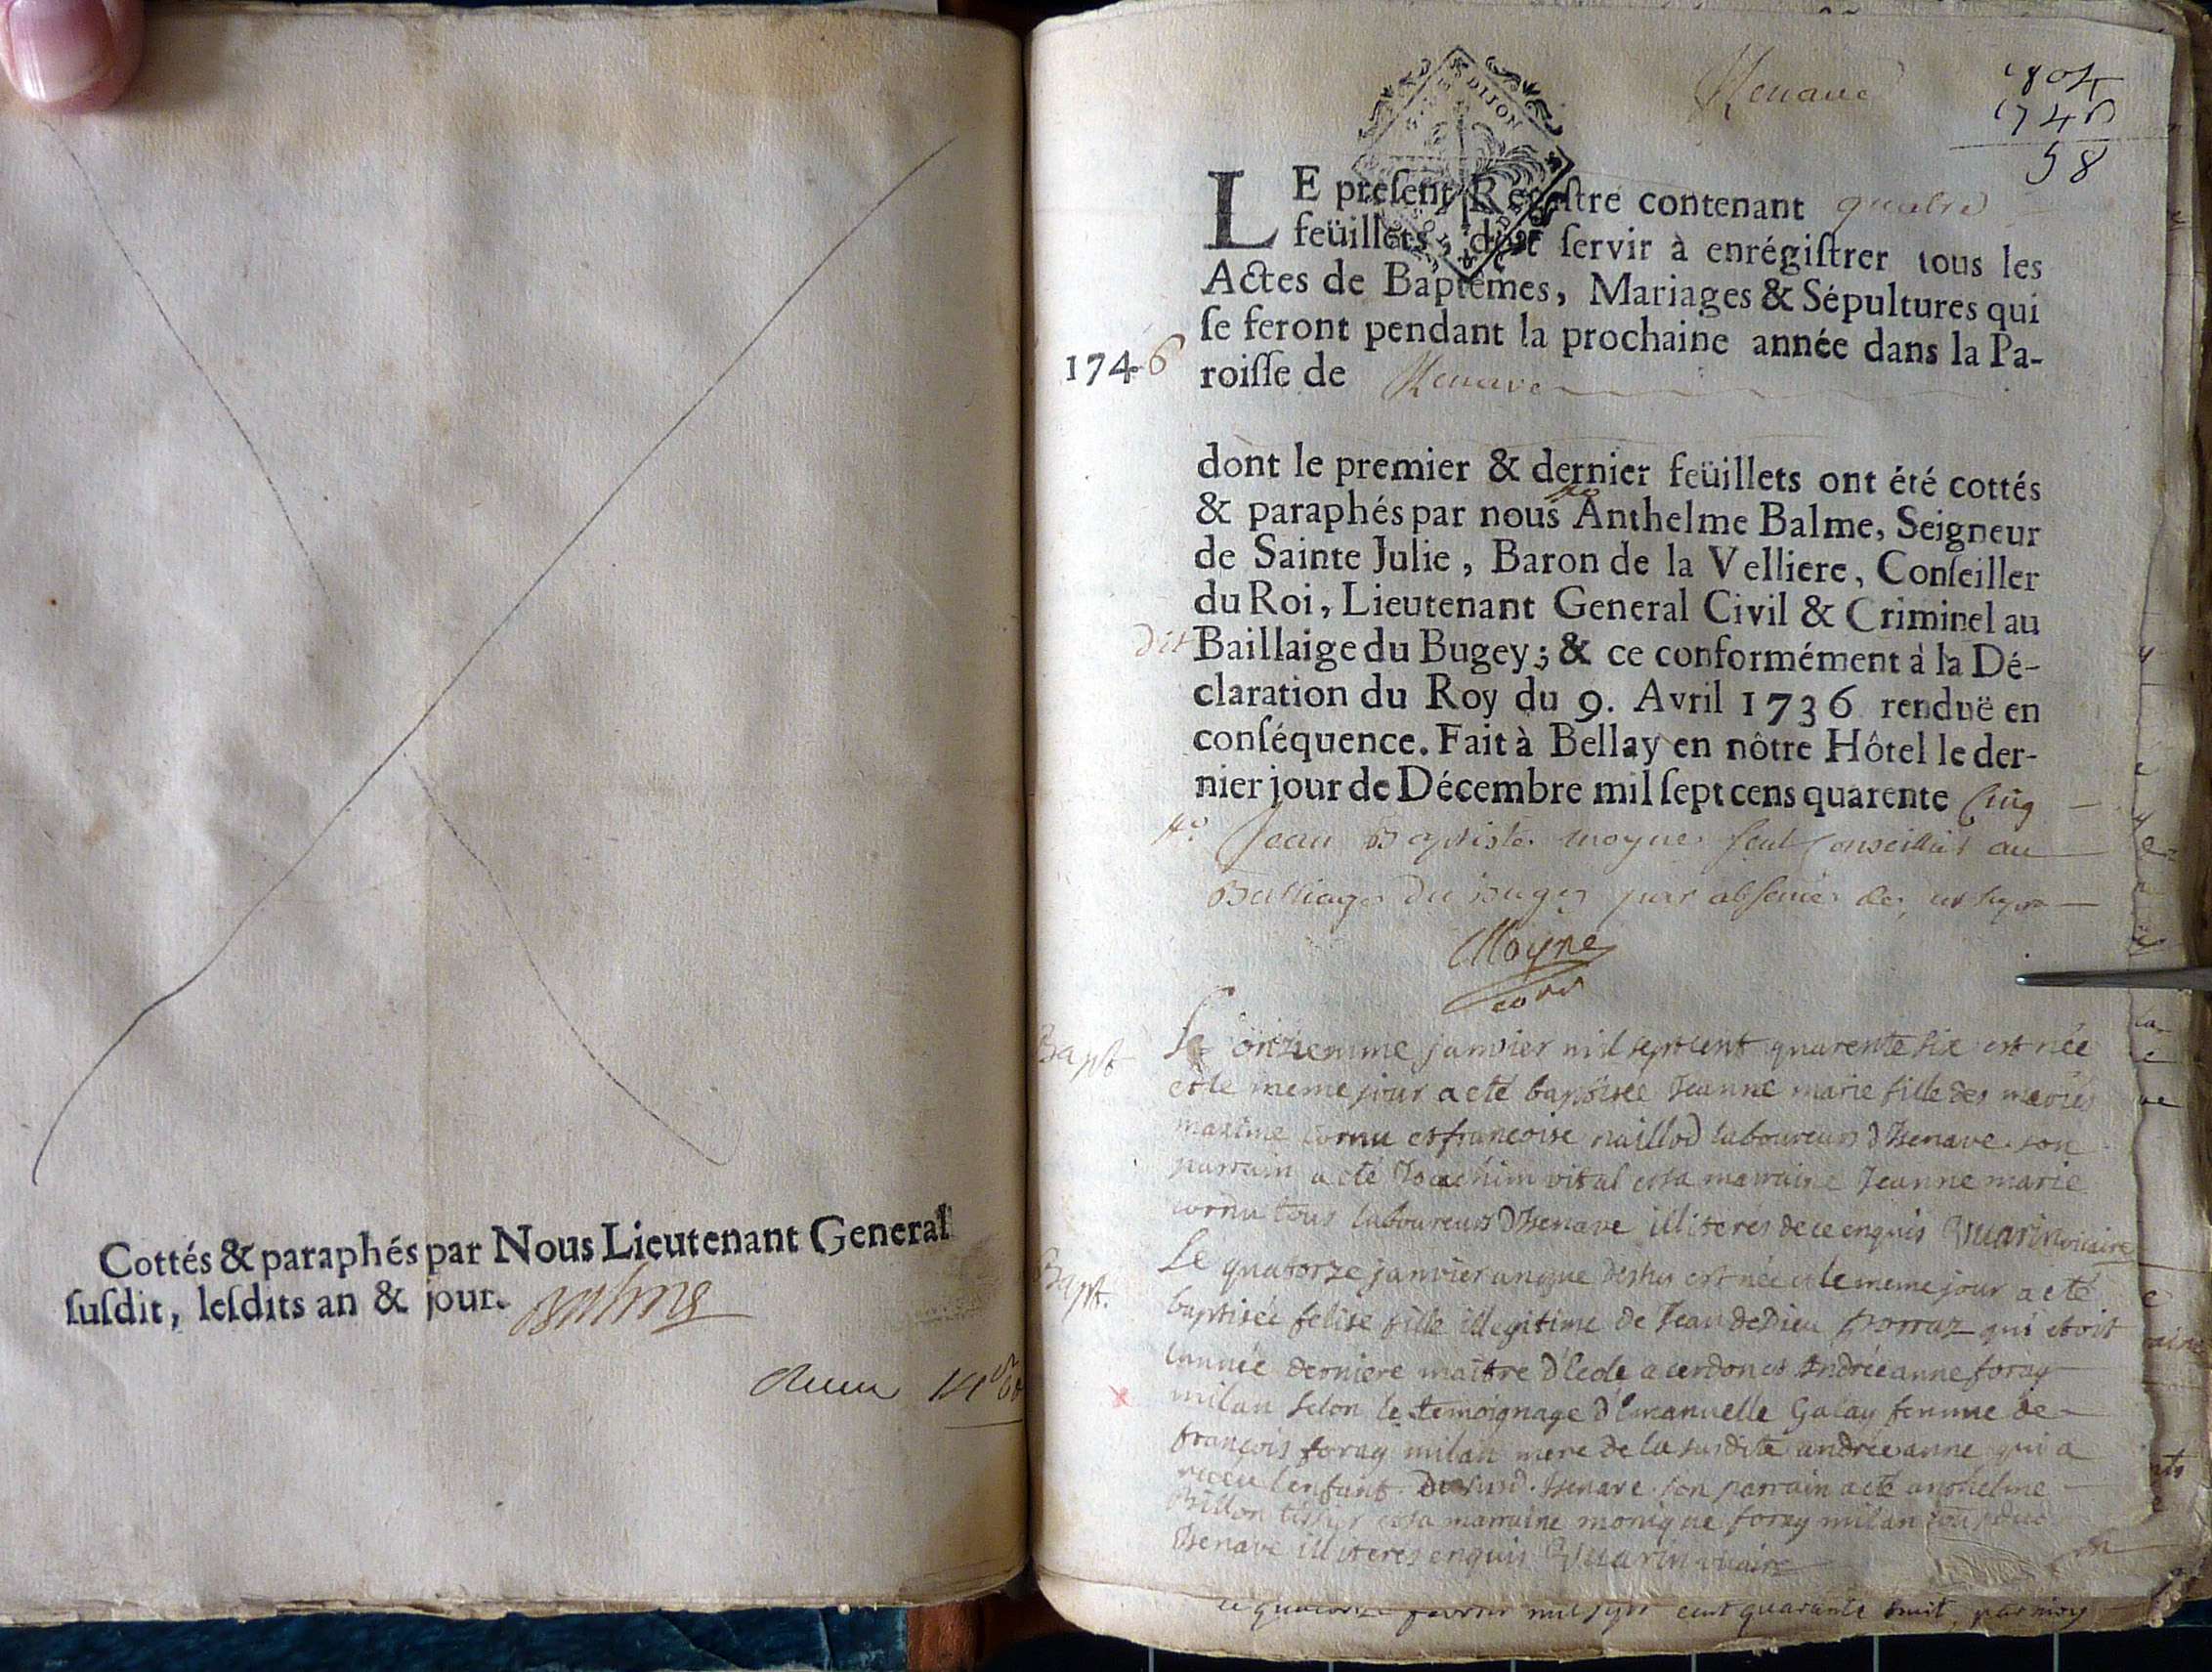 Cottés & paraphés par Nous Lieutenant General
ſuſdit, leſdits an & jour.
DIJON
1804
1746
58
LE preſent Regiſtre contenant quatre
feüillets, doit ſervir à enrégiſtrer tous les
Actes de Baptêmes, Mariages & Sépultures qui
ſe feront pendant la prochaine année dans la Pa-
1746
roiſſe de
dont le premier & dernier feüillets ont été cottés
& paraphés par nous Anthelme Balme, Seigneur
de Sainte Julie, Baron de la Velliere, Conſeiller
du Roi, Lieutenant General Civil & Criminel au
dit Baillaige du Bugey; & ce conformément à la Dé-
claration du Roy du 9. Avril 1736 renduë en
conſéquence. Fait à Bellay en nôtre Hôtel le der-
nier jour de Décembre mil ſept cens quarente Cinq
Jean Baptiste moyne seul Conseiller au
Balliage du Bugey par absence des
Moyne
Bapt
Le onziemme janvier mil sept cent quarente six est née
et le meme jour a eté baptisée Jeanne marie fille des mariés
maxime cornu et francoise naillod laboureurs d'Isenave. son
parrain a eté Joachim vital et sa marraine Jeanne marie
cornu tous laboureurs d'Isenave illiterés de ce enquis Vuarin vicaire
Bapt.
Le quatorze janvier an que dessus est née et le meme jour a eté
baptisée felise fille illegitime de Jean de Dieu porraz qui etoit
l'année derniere maitre d'école a cerdon et Andréeanne foray
milan selon le temoignage d'Emanuelle Galay femme de
françois foray milan mere de la susdite andréeanne qui a
receu l'enfant. dud. Isenave. son parrain a eté anthelme
Billon et sa marraine monique foray milan tous dud
Isenave illiterés enquis Vuarin vicaire
fevrier mil sept cent quarante huit, par moy